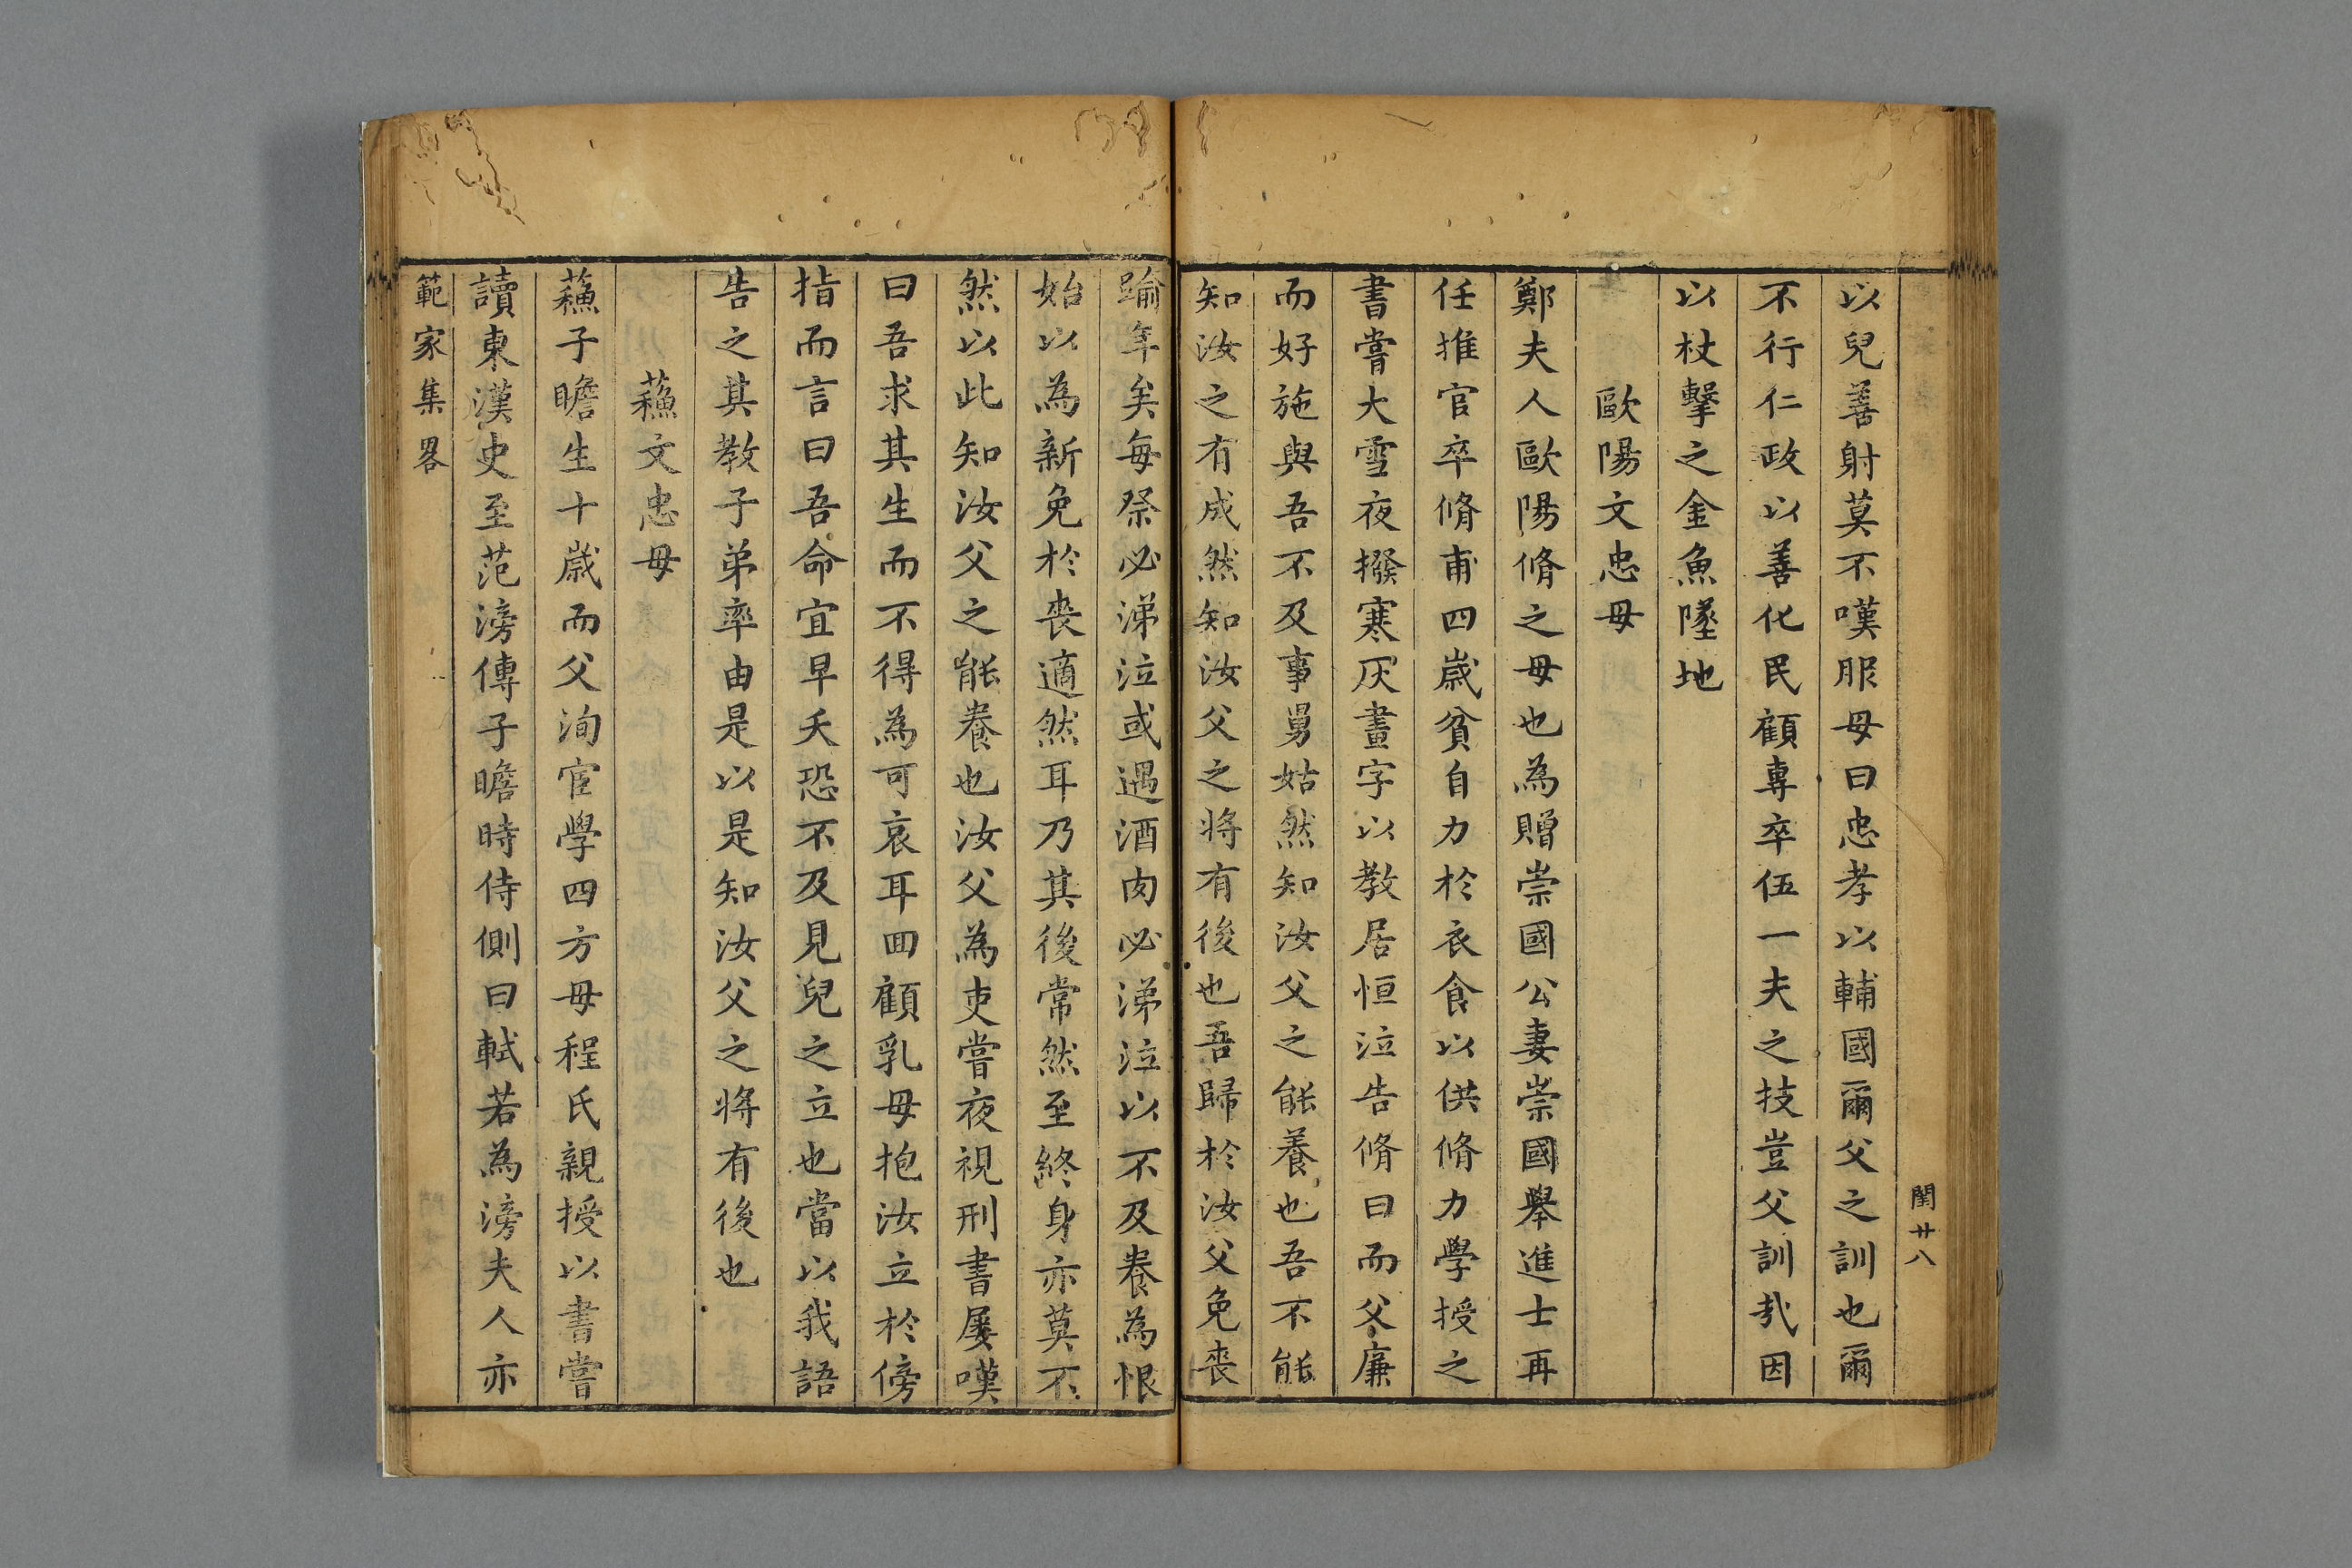 閨廿八
以兒善射莫不嘆服母曰忠孝以輔國爾父之訓也爾
不行仁政以善化民顧專卒伍一夫之技豈父訓㢤因
以杖擊之金魚墜地
歐陽文忠母
鄭夫人歐陽脩之母也為贈崇國公妻崇國舉進士再
任推官卒脩甫四歲貧自力於衣食以供脩力學授之
書嘗大雪夜撥寒灰畫字以教居恒泣告脩曰而父廉
而好施與吾不及事舅姑然知汝父之能養也吾不能
知汝之有成然知汝父之將有後也吾歸於汝父免喪
踰年矣每祭必涕泣或遇酒肉必涕泣以不及養為恨
始以為新免於喪適然耳乃其後常然至終身亦莫不
然以此知汝父之能養也汝父為吏嘗夜視刑書屢嘆
曰吾求其生而不得為可哀耳回顧乳母抱汝立於傍
指而言曰吾命宜早夭恐不及見兒之立也當以我語
告之其教子弟率由是以是知汝父之將有後也
蘓文忠母
蘓子瞻生十歲而父洵宦學四方母程氏親授以書嘗
讀東漢史至范滂傳子瞻時侍側曰軾若為滂夫人亦
範家集畧